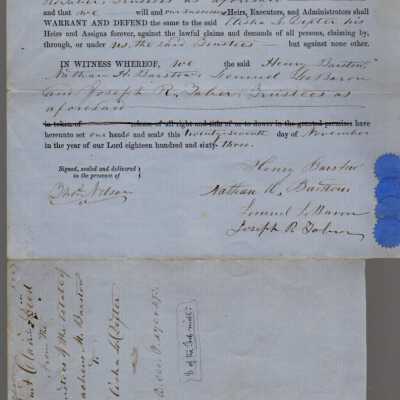 Trustees as aforesaid
and that we will and our successors Heirs, Executors, and Administrators shall
WARRANT AND DEFEND the same to the said Elisha L. Dexter his
Heirs and Assigns forever, against the lawful claims and demands of all persons, claiming by,
through, or under us, the said Trustees but against none other.
IN WITNESS WHEREOF, we the said Henry Barstow,
Nathan H. Barstow, Lemuel LeBaron
and Joseph R. Taber, Trustees as
aforesaid
in token of release of all right and title of or to dower in the granted premises have
hereunto set our hands and seals this twenty seventh day of November
in the year of our Lord eighteen hundred and sixty three.
Signed, sealed and delivered
in the presence of
Henry Barstow
Nathan H. Barstow
Lemuel LeBaron
Joseph R. Taber
Quit Claim Deed
From the
Trustees of the Estate of
Barstow
to
Elisha L. Dexter